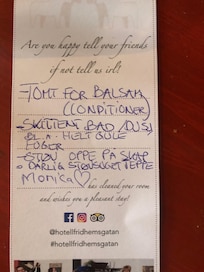 Are you happy tell your friends
if not tell us irl!
- TOMT FOR BALSAM
(CONDITIONER)
- SKITTENT BAD/DUSJ
BL.A. HELT GULE
FUGER
- STØV OPPE PÅ SKAP
○ DÅRLIG STØVSUGET TEPPE
Monica
has cleaned your room
and wishes you a pleasant stay!
@hotellfridhemsgatan
#hotellfridhemsgatan